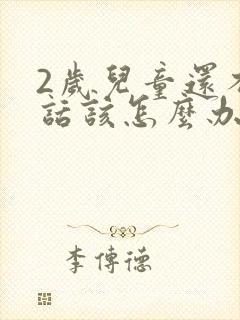 2歲兒童還
話該怎麼办
李傳德